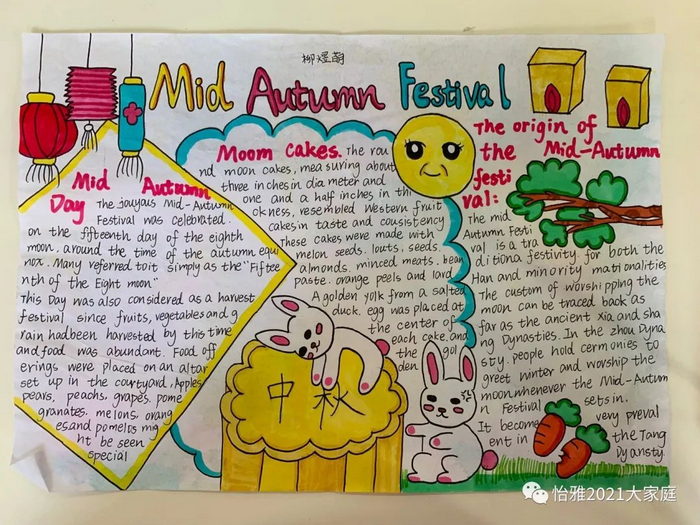 柳煜萌
Mid Autumn Festival
Mid Autumn
Day The joyous Mid-Autumn
Festival was celebrated
on the fifteenth day of the eighth
moon. around the time of the autumn equi
nox. Many referred to it simply as the "Fiftee
nth of the Eight moon"
This Day was also considered as a harvest
festival since fruits, vegetables and g
rain hadbeen harvested by this time
and food was abundant. Food off
erings were placed on an altar
set up in the courtyard. Apples
pears, peachs, grapes. pome
granates. melons, orang
es.and pomelos mig
ht be seen
special
Moom cakes. The rou
nd moon cakes, mea suring about
three inches in dia meter and
one and a half inches in thi
ckness, resembled Western fruit
cakes in taste and cousistency
These cakes were made with
melon seeds. louts. seeds.
almonds. minced meats. bean
paste. orange peels and lard
A golden yolk from a salted
duck. egg was placed at
the center of
each cake. and
the gol
den
The origin of
the Mid-Autumn
festi
val:
The mid
Autumn Festi
val is a tra
ditiona festivity for both the
Han and minority mationalities
The custom of worshi pping the
moon can be traced back as
far as the ancient Xia and sha
ng Dynasties. In the zhou Dyna
sty. people hold cermonies to
greet winter and worship the
moon.whenever the Mid-Autum
n Festival sets in.
It become very preval
ent in the Tang
Dyansty.
中秋
怡雅2021大家庭